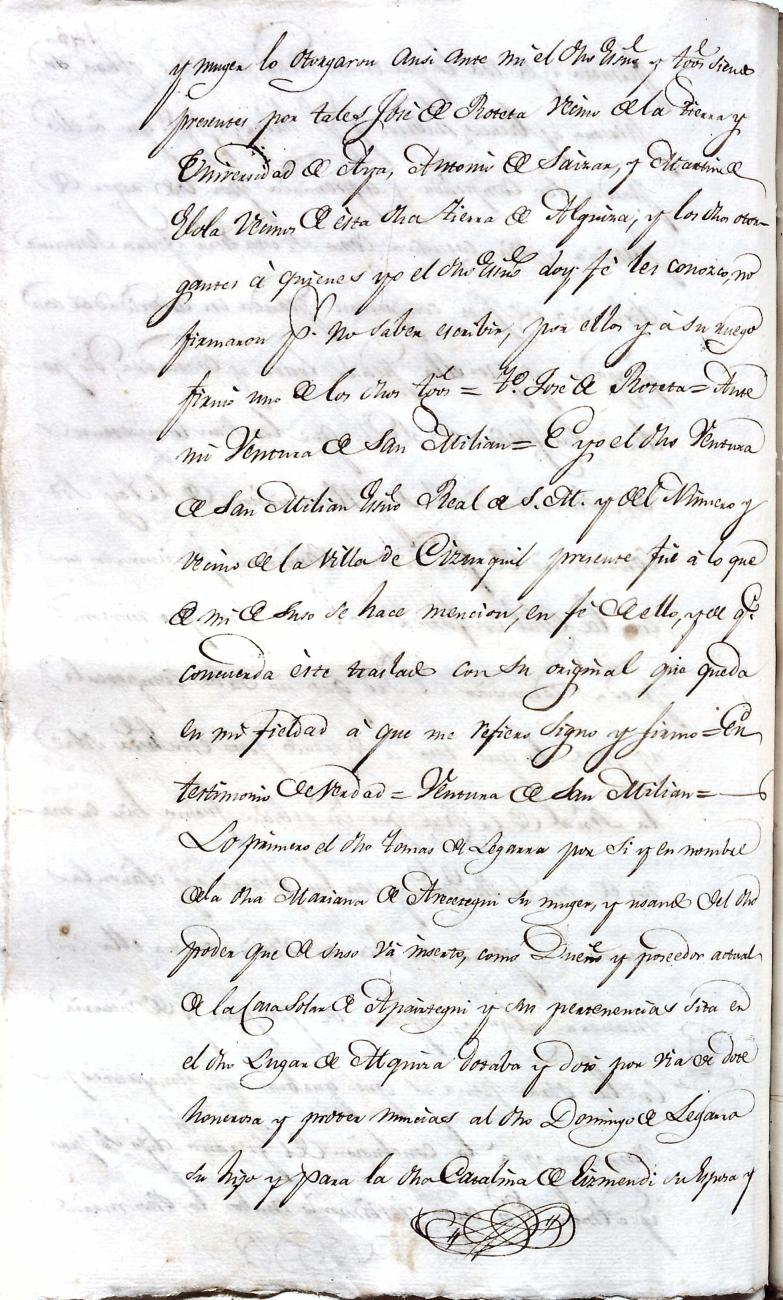 y muger lo otorgaron ansi ante mi el dho Essno y tgos siendo
presentes por tales José de Roteta Vecino de la tierra y
Universidad de Aya, Antonio de Saizar, y Martin de
Elola Vecinos de ésta dha tierra de Alquiza, y los dhos otor-
gantes à quienes yo el dho Essno doy fé les conozco, no
firmaron pr. no saber escribir, por ellos y à su ruego
firmó uno de los dhos tgos = tgo. José de Roteta = Ante
mi Ventura de San Milian = E yo el dho Ventura
de San Milian Essno Real de S. M. y del Número y
vecino de la Villa de Cizurquil presente fui à lo que
de mi de suso se hace mencion, en fé de ello, y de qe.
concuerda éste traslado con su original que queda
en mi fieldad à que me refiero signo y firmo = En
testimonio de verdad = Ventura de San Milian =
Lo primero el dho tomas de Legarra por si y en nombre
de la dha Mariana de Arecetegui su muger, y usando del dho
poder que de suso vá inserto, como Dueño y poseedor actual
de la Casa Solar de Apairtegui y sus pertenencias sita en
el dho Lugar de Alquiza dotaba y dotó por via de dote
honerosa y propter nuncias al dho Domingo de Legarra
su hijo y para la dha Catalina de Eizmendi su Esposa y